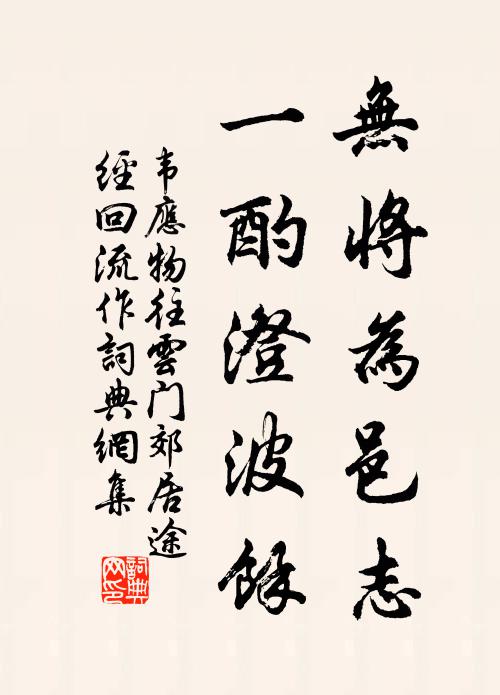 無將為邑志
一酌澄波餘
韦應物往雲門郊居途
經回流作詞典網集
詞典
网印